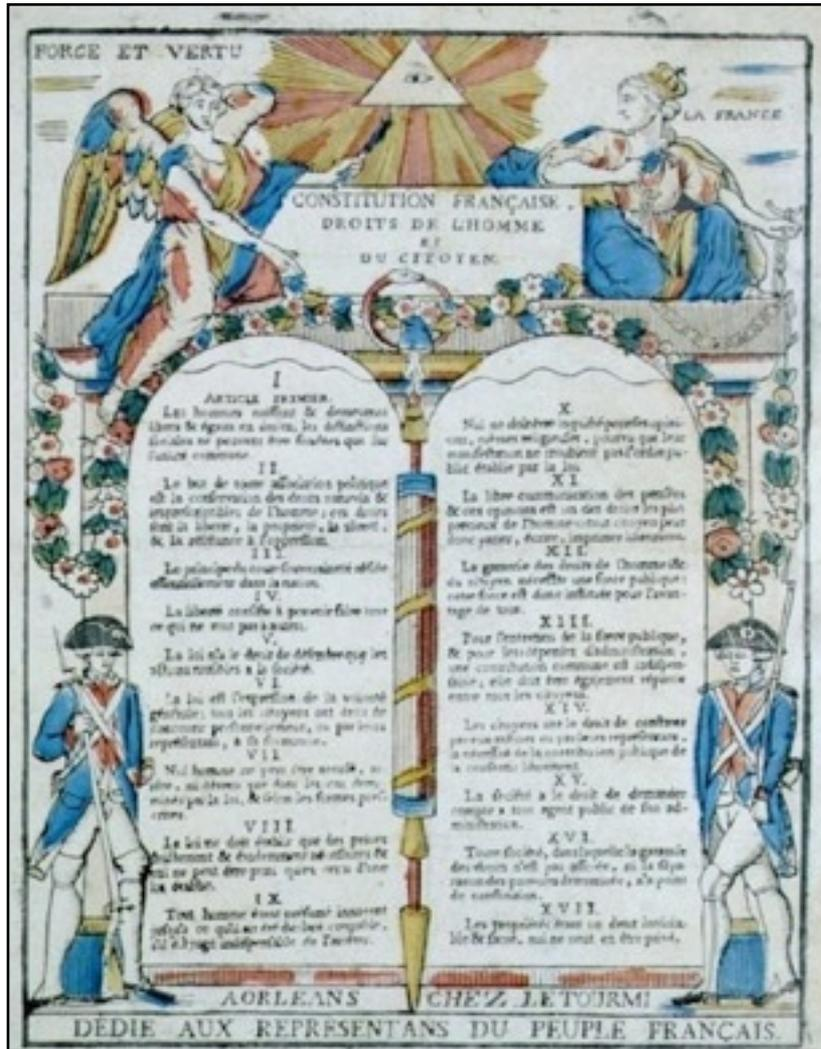 FORCE ET VERTU
LA FRANCE
CONSTITUTION FRANÇAISE.
DROITS DE LHOMME
ET
DU CITOYEN.
I
ARTICLE PREMIER.
Les hommes naissent & demeurent
libres & égaux en droits, les distinctions
sociales ne peuvent être fondées que sur
II.
Le but de toute association politique
est la conservation des droits naturels &
imprescriptibles de l'homme; ces droits
sont la liberté, la propriété, la sûreté,
& la résistance à l'oppression.
III.
Le principe de toute souveraineté réside
essentiellement dans la nation.
IV.
La liberté consiste à pouvoir faire tout
ce qui ne nuit pas à autrui.
V.
La loi n'a le droit de défendre que les
actions nuisibles à la société.
VI.
La loi est l'expression de la volonté
générale; tous les citoyens ont droit de
concourir personnellement, ou par leurs
représentans, à sa formation.
VII.
Nul homme ne peut être accusé,
que dans les cas
par la loi, & selon les formes
VIII.
La loi ne doit établir que des peines
& &
IX
Tout homme étant présumé innocent
X.
Nul ne doit être inquiété pour ses opini-
ons, mêmes religieuses, pourvu que leur
manifestation ne trouble pas l'ordre pu-
blic établie par la loi.
XI.
La libre communication des pensées
& des opinions est un des droits les plus
précieux de l'homme: tout citoyen peut
donc parler, écrire, imprimer librement.
XII.
La garantie des droits de l'homme &
du citoyen nécessite une force publique:
cette force est donc instituée pour l'avan-
tage de tous.
XIII.
Pour l'entretien de la force publique,
& pour les dépenses d'administration,
une contribution commune est indispen-
sable; elle doit être également répartie
entre tous les citoyens.
XIV.
Les citoyens ont le droit de constater
par eux mêmes ou par leurs représentans,
la nécessité de la contribution publique de
la consentir librement.
XV.
La société a le droit de demander
compte à tout agent public de son ad-
ministration.
XVI.
Toute société, dans laquelle la garantie
des droits n'est pas assurée, ni la sépa-
ration des pouvoirs déterminée, n'a point
de constitution.
XVII.
Les propriétés étant un droit inviola-
ble & sacré, nul ne peut en être privé.
A ORLEANS CHEZ LETOURMI
DÉDIÉ AUX REPRESENTANS DU PEUPLE FRANÇAIS.